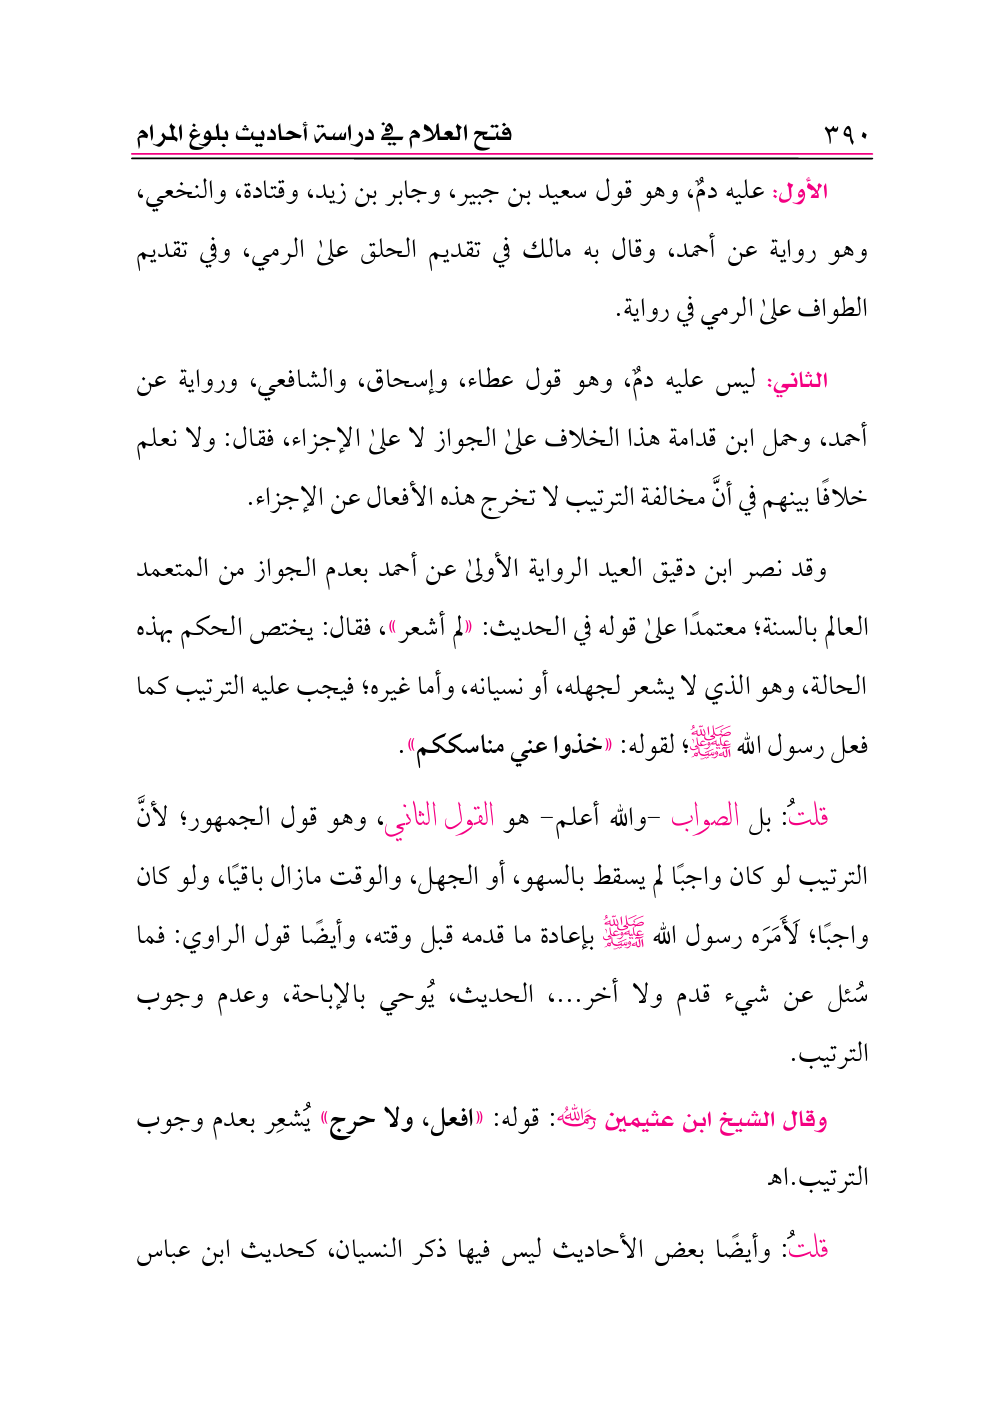 ٣٩٠ فتح العلام في دراسة أحاديث بلوغ المرام
الأول: عليه دمٌ، وهو قول سعيد بن جبير، وجابر بن زيد، وقتادة، والنخعي،
وهو رواية عن أحمد، وقال به مالك في تقديم الحلق علىٰ الرمي، وفي تقديم
الطواف علىٰ الرمي في رواية.
الثاني: ليس عليه دمٌ، وهو قول عطاء، وإسحاق، والشافعي، ورواية عن
أحمد، وحمل ابن قدامة هذا الخلاف علىٰ الجواز لا علىٰ الإجزاء، فقال: ولا نعلم
خلافًا بينهم في أنَّ مخالفة الترتيب لا تخرج هذه الأفعال عن الإجزاء.
وقد نصر ابن دقيق العيد الرواية الأولىٰ عن أحمد بعدم الجواز من المتعمد
العالم بالسنة؛ معتمدًا علىٰ قوله في الحديث: «لم أشعر»، فقال: يختص الحكم بهذه
الحالة، وهو الذي لا يشعر لجهله، أو نسيانه، وأما غيره؛ فيجب عليه الترتيب كما
فعل رسول الله ﷺ؛ لقوله: «خذوا عني مناسككم».
قلتُ: بل الصواب -والله أعلم- هو القول الثاني، وهو قول الجمهور؛ لأنَّ
الترتيب لو كان واجبًا لم يسقط بالسهو، أو الجهل، والوقت مازال باقيًا، ولو كان
واجبًا؛ لَأَمَرَه رسول الله ﷺ بإعادة ما قدمه قبل وقته، وأيضًا قول الراوي: فما
سُئل عن شيء قدم ولا أخر...، الحديث، يُوحي بالإباحة، وعدم وجوب
الترتيب.
وقال الشيخ ابن عثيمين رحمه الله: قوله: «افعل، ولا حرج» يُشعِر بعدم وجوب
الترتيب.اهـ
قلتُ: وأيضًا بعض الأحاديث ليس فيها ذكر النسيان، كحديث ابن عباس